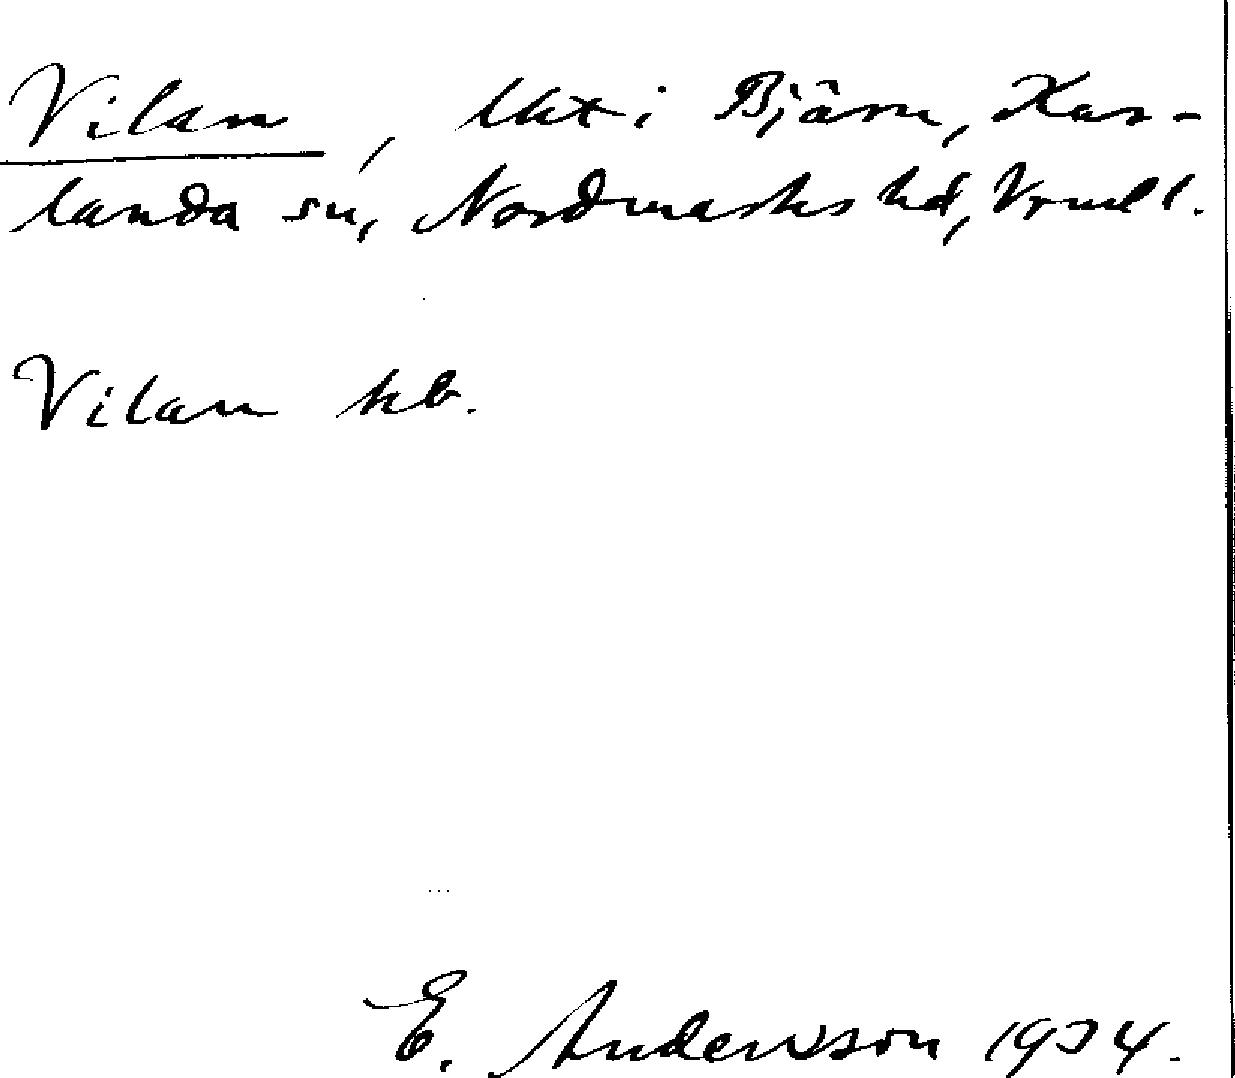 Vilan, lht i Bjärn, Kar-
landa sn, Nordmarks hd, Vrml l.
Vilan kb.
E. Andersson 1934.